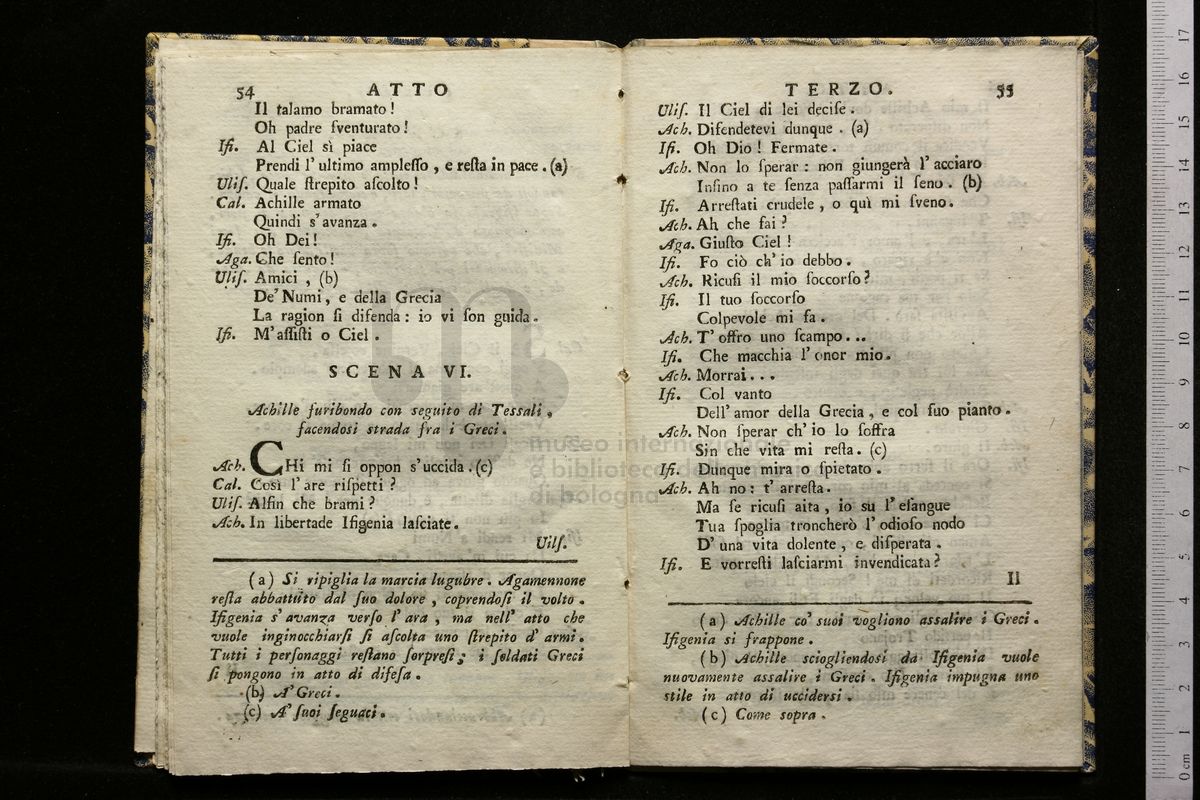 54 ATTO
Il talamo bramato!
Oh padre ſventurato!
Ifi. Al Ciel sì piace
Prendi l'ultimo ampleſſo, e reſta in pace. (a)
Uliſ. Quale ſtrepito aſcolto!
Cal. Achille armato
Quindi s'avanza.
Ifi. Oh Dei!
Aga. Che ſento!
Uliſ. Amici, (b)
De' Numi, e della Grecia
La ragion ſi difenda: io vi ſon guida.
Ifi. M'aſſiſti o Ciel.
SCENA VI.
Achille furibondo con seguito di Tessali,
facendosi strada fra i Greci.
Ach. CHi mi ſi oppon s'uccida. (c)
Cal. Così l'are riſpetti?
Uliſ. Alfin che brami?
Ach. In libertade Ifigenia laſciate.
Uilſ.
(a) Si ripiglia la marcia lugubre. Agamennone
reſta abbattuto dal ſuo dolore, coprendoſi il volto.
Ifigenia s'avanza verſo l'ara, ma nell'atto che
vuole inginocchiarſi ſi aſcolta uno ſtrepito d'armi.
Tutti i perſonaggi reſtano ſorpreſi; i ſoldati Greci
ſi pongono in atto di difeſa.
(b) A' Greci.
(c) A' ſuoi ſeguaci.
TERZO. 55
Uliſ. Il Ciel di lei deciſe.
Ach. Difendetevi dunque. (a)
Ifi. Oh Dio! Fermate.
Ach. Non lo ſperar: non giungerà l'acciaro
Infino a te ſenza paſſarmi il ſeno. (b)
Ifi. Arreſtati crudele, o quì mi ſveno.
Ach. Ah che fai?
Aga. Giuſto Ciel!
Ifi. Fo ciò ch'io debbo.
Ach. Ricuſi il mio ſoccorſo?
Ifi. Il tuo ſoccorſo
Colpevole mi fa.
Ach. T'offro uno ſcampo...
Ifi. Che macchia l'onor mio.
Ach. Morrai...
Ifi. Col vanto
Dell'amor della Grecia, e col ſuo pianto.
Ach. Non ſperar ch'io lo ſoffra
Sin che vita mi reſta. (c)
Ifi. Dunque mira o ſpietato.
Ach. Ah no: t'arreſta.
Ma ſe ricuſi aita, io su l'eſangue
Tua ſpoglia troncherò l'odioſo nodo
D'una vita dolente, e diſperata.
Ifi. E vorreſti laſciarmi invendicata?
Il
(a) Achille co' suoi vogliono assalire i Greci.
Ifigenia si frappone.
(b) Achille sciogliendosi da Ifigenia vuole
nuovamente assalire i Greci. Ifigenia impugna uno
stile in atto di uccidersi.
(c) Come sopra.
museo internazionale
e biblioteca della musica
di bologna
0 cm 1 2 3 4 5 6 7 8 9 10 11 12 13 14 15 16 17